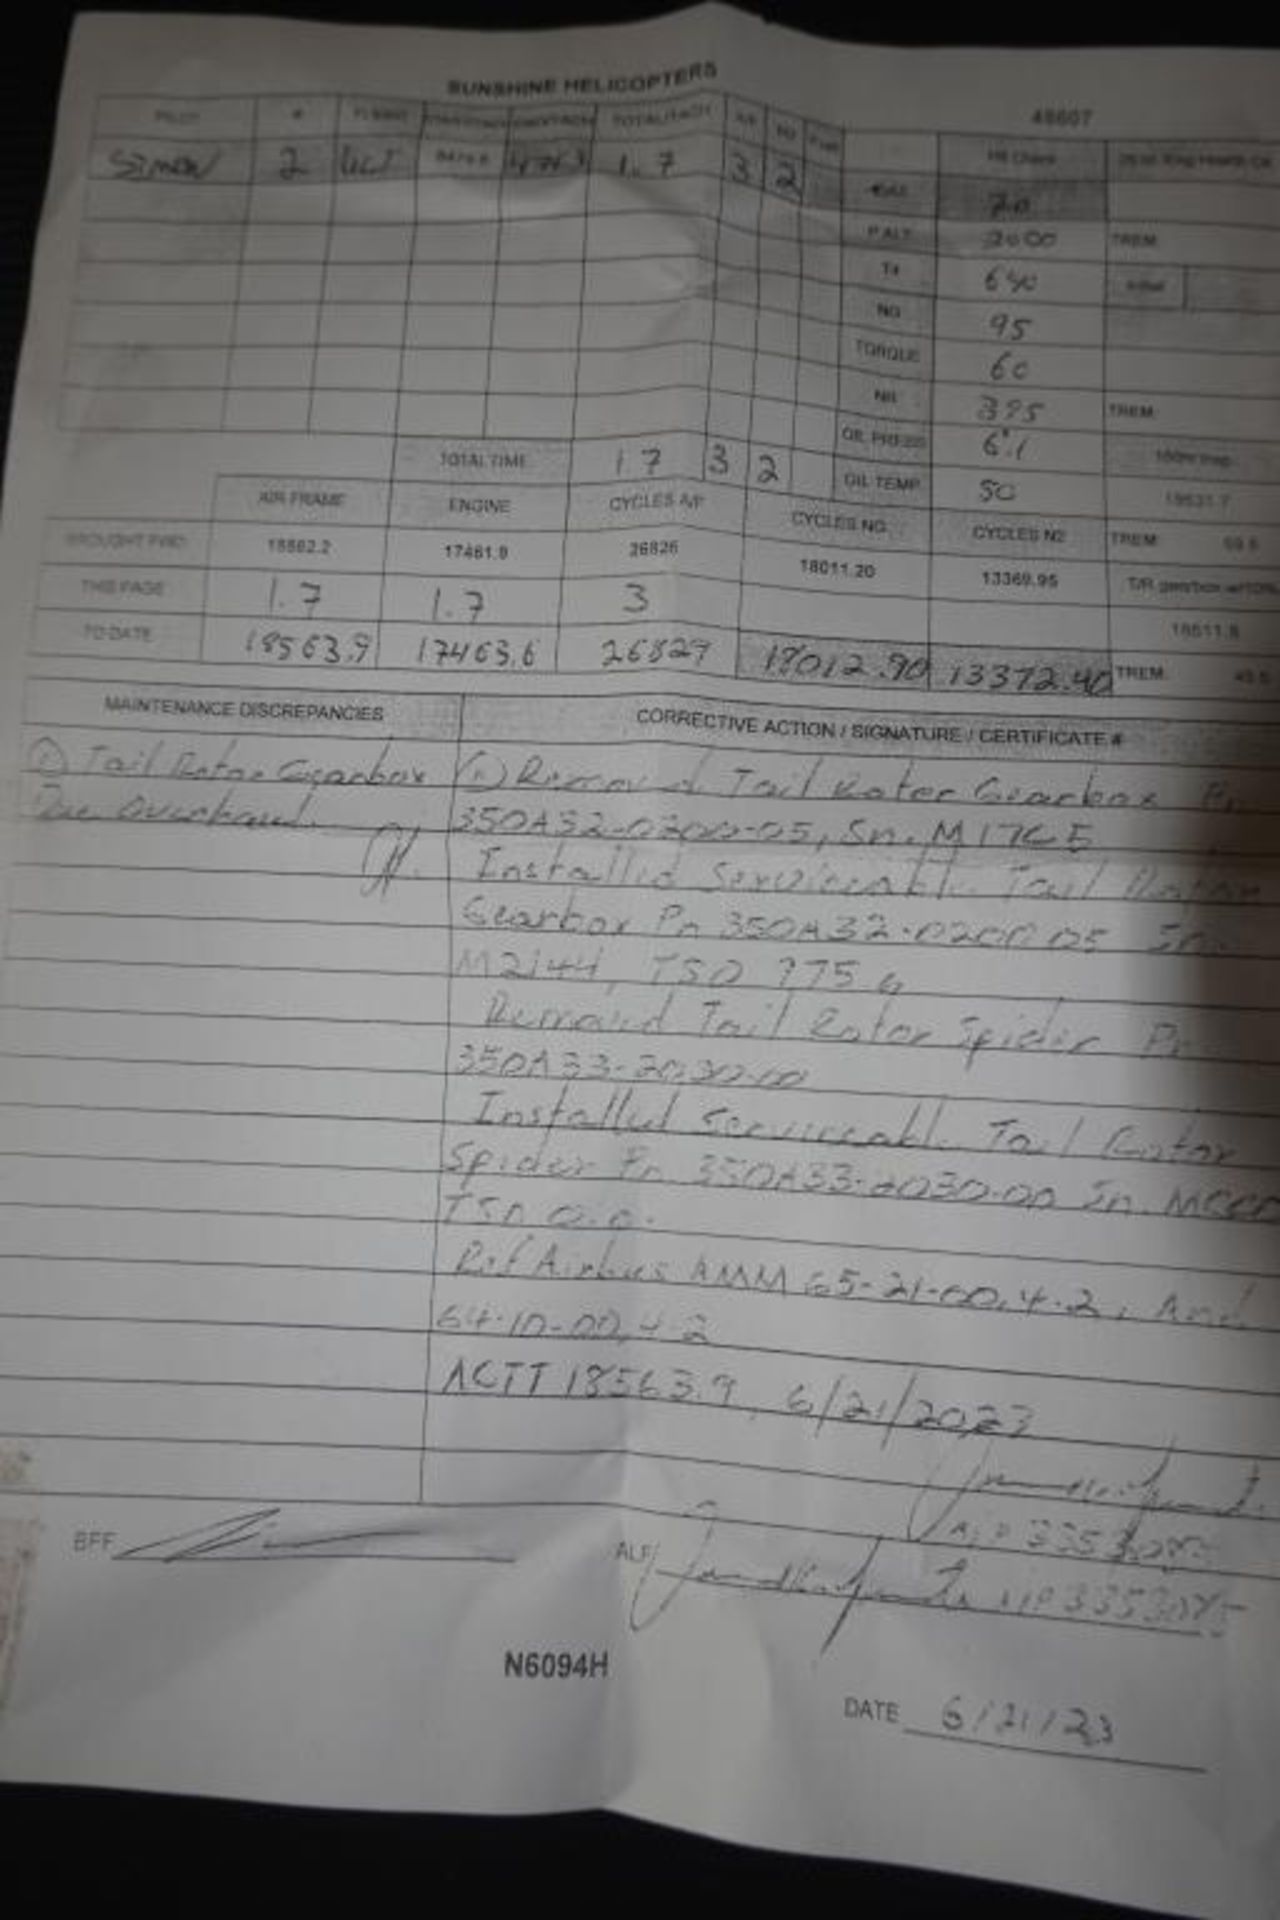 SUNSHINE HELICOPTERS
45607
PILOT # TOTAL/TACH
Simon 2 1.7 3 2
Hit Check
20
P ALT 2000 TREM
T4 640 Initial
NG 95
TORQUE 60
NR 395 TREM
OIL PRESS 6.1
TOTAL TIME 1.7 3 2 OIL TEMP 50 18531.7
AIR FRAME ENGINE CYCLES A/F CYCLES NG CYCLES N2 TREM
BROUGHT FWD 18562.2 17461.9 26826 18011.20 13369.95 T/R gearbox
THIS PAGE 1.7 1.7 3 18611.8
TO DATE 18563.9 17463.6 26829 18012.90 13372.40 TREM
MAINTENANCE DISCREPANCIES CORRECTIVE ACTION / SIGNATURE / CERTIFICATE #
Tail Rotor Gearbox
Due Overhaul.
Removed Tail Rotor Gearbox Pn
350A32-0200-05, Sn. M17C5
Installed Serviceable Tail Rotor
Gearbox Pn 350A32-0200-05 Sn.
M2144, TSO 775.6
Removed Tail Rotor Spider Pn
350A33-2030-00
Installed Serviceable Tail Rotor
Spider Pn 350A33-2030-00 Sn.
TSN 0.0.
Ref Airbus AMM 65-21-00, 4-2, And
64-10-00, 4-2
ACTT 18563.9, 6/21/2023
3353085
BFF
ALF 3353085
N6094H
DATE 6/21/23